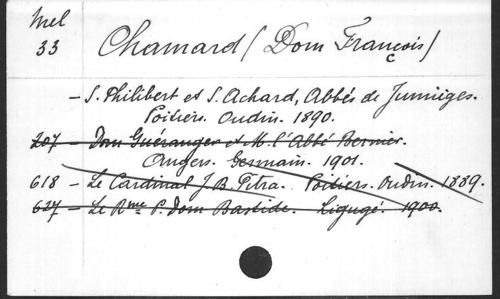 Mel
33
Chamard (Dom François)
- S. Philibert et S. Achard, Abbés de Jumièges.
Poitiers. Oudin. 1890.
207 - Dom Guéranger et M. l'Abbé Bernier.
Angers. Germain. 1901.
618 - Le Cardinal J. B. Pitra. Poitiers. Oudin. 1889.
627 - Le Rme P. Dom Bastide. Ligugé. 1900.